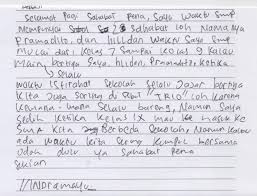 Selamat Pagi Sahabat Pena, Saya Waktu SMP
Mempunyai 2 Sahabat loh Namanya
Pramadito, dan hildan Waktu Saya SMP
Mulai dari kelas 7 Sampai kelas 9 kalau
Main, bertiga Saya, hildan, Pramadito, ketika
selalu
waktu istirahat sekolah selalu Jajan bertiga
kita Juga sering di sebut "TRIO" loh karena
kemana-mana selalu bareng, Namun Saya
sedih ketika kelas IX mau ke masuk ke
SMA kita Berbeda Sekolah, Namun kalau
ada waktu kita sering kumpul bersama
dulu ya sahabat pena
Sekian
//Indramayu